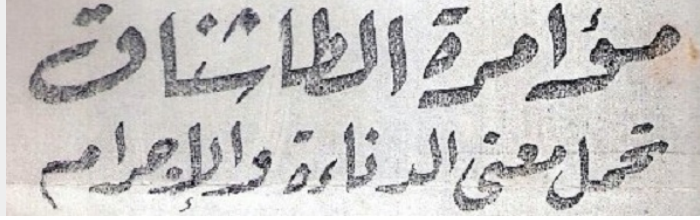 مؤامرة الطاشناق
تحمل معنى الدناءة والإجرام